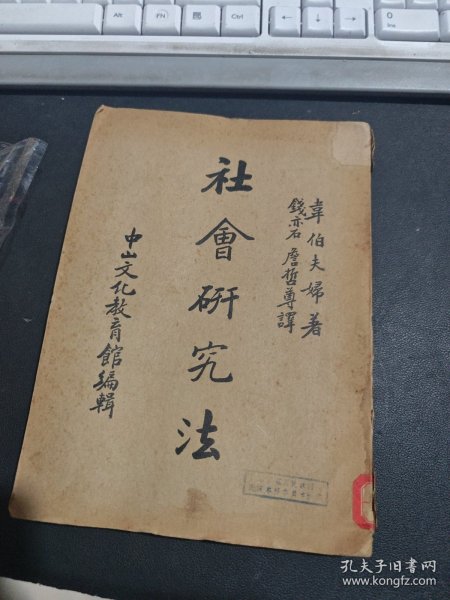 韋伯夫婦著
錢亦石 詹哲尊譯
社會研究法
中山文化教育館編輯
Alt
FN
Ctrl
←
↓
→
0
Ins
孔夫子旧书网
www.kongfz.com